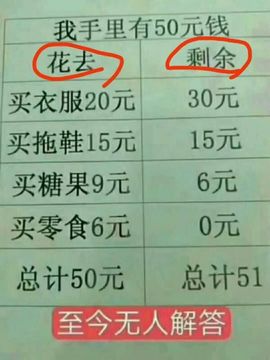 我手里有50元钱
花去 剩余
买衣服20元 30元
买拖鞋15元 15元
买糖果9元 6元
买零食6元 0元
总计50元 总计51
至今无人解答